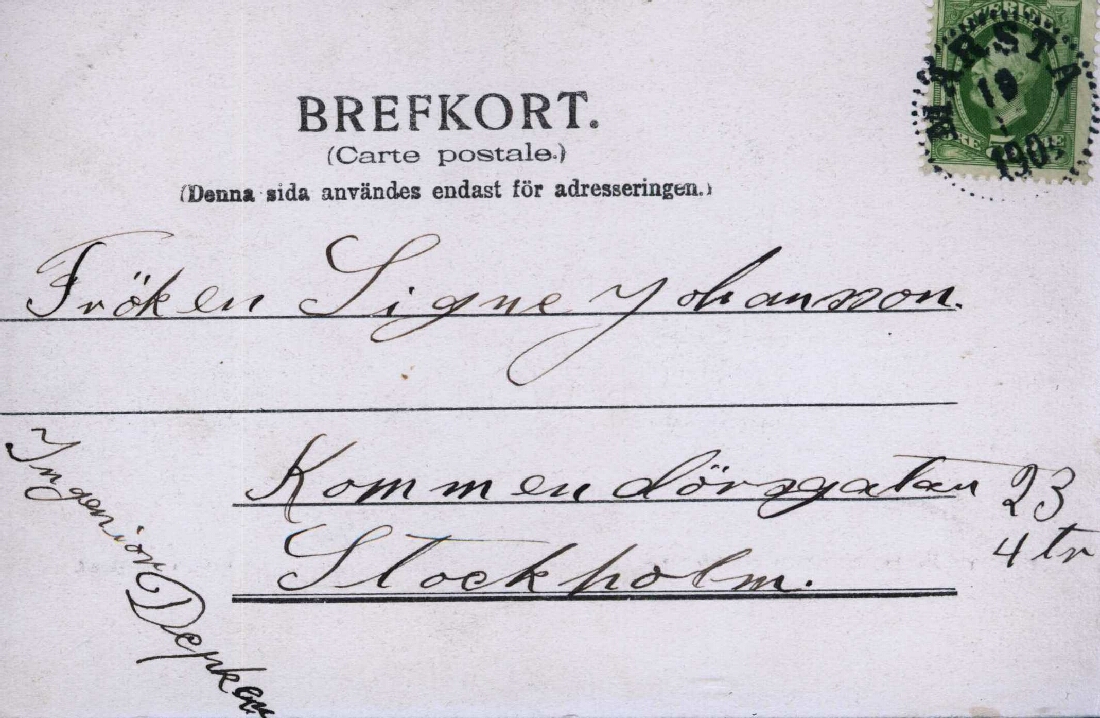 BREFKORT.
(Carte postale.)
(Denna sida användes endast för adresseringen.)
MÄRSTA
Fröken Signe Johansson.
Kommendörsgatan 23
4 tr
Stockholm.
Ingeniör